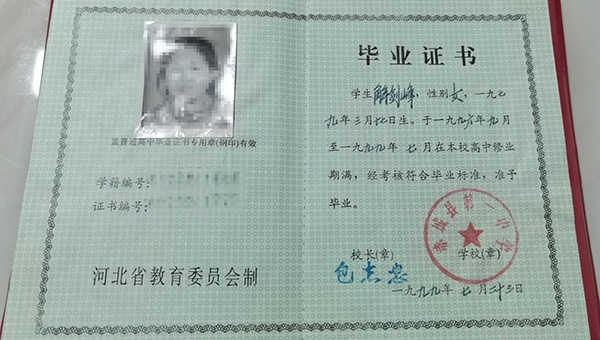 盖普通高中毕业证书专用章(钢印)有效
学籍编号:
证书编号:
河北省教育委员会制
毕业证书
学生解剑峰,性别女,一九七
九年三月 日生。于一九九六年九月
至一九九九年七月在本校高中修业
期满,经考核符合毕业标准,准予
毕业。
校长(章) 学校(章)
城县第一中学
一九九九年七月二十三日